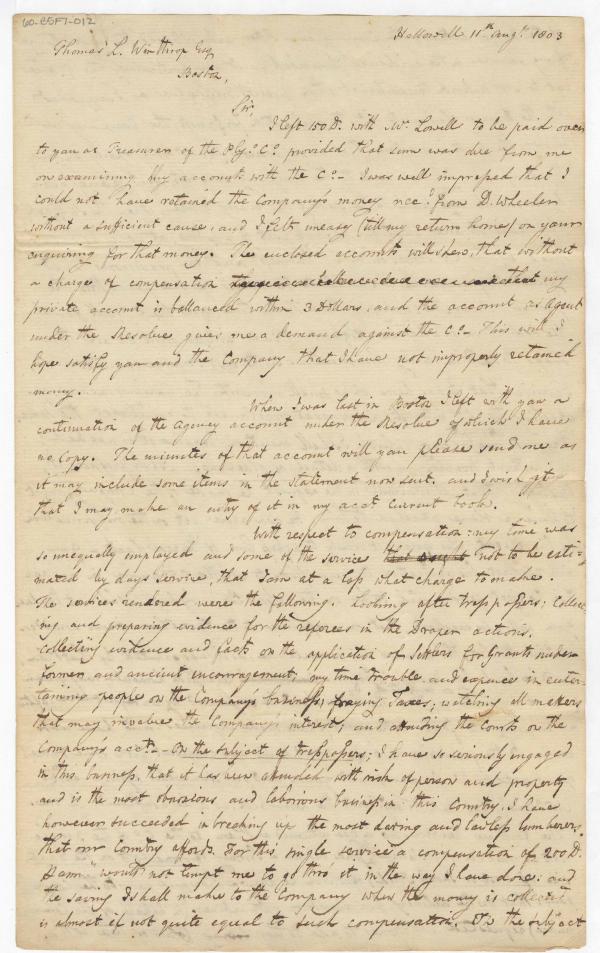 60-ESF7-012
Hallowell 11th Augt. 1803
Thomas L. Winthrop Esq
Boston,
Sir,
I left 150 D. with Mr. Lowell to be paid over
to you as Treasurer of the Co. provided that sum was due from me
on examining my accounts with the Co.- I was well impressed that I
could not have retained the Company's money recd. from D. Wheeler
without a sufficient cause, and I felt uneasy (till my return home) on your
enquiring for that money. The enclosed accounts will shew, that without
a charge of compensation that my
private account is ballanced within 3 Dollars, and the account as Agent
under the Resolve gives me a demand against the Co.- This will I
hope satisfy you and the Company that I have not improperly retained
money.
When I was last in Boston I left with you a
continuation of the Agency account under the Resolve of which I have
no Copy. The minutes of that account will you please send me as
it may include some items in the statement now sent. and I wish for
that I may make an entry of it in my acct Current book.
With respect to compensation: my time was
so unequally employed and some of the service that ought not to be esti-
mated by days service, that I am at a loss what charge to make.
The services rendered were the following. Looking after trespassers; Collect-
ing and preparing evidence for the referees in the Draper actions.
Collecting evidence and facts on the application of Settlers for Grants under
former and ancient incouragement; my time trouble and expence in enter-
taining people on the Company's business; paying Taxes; watching all matters
that may involve the Company's interest; and attending the Courts on the
Company's acct.- On the subject of trespassers; I have so seriously engaged
in this business, that it has been attended with risk of person and property
and is the most obnoxious and laborious business in this Country. I have
however succeeded in breaking up the most daring and lawless lumberers
that our Country affords. For this single service a compensation of 200 D.
would not tempt me to go thro it in the way I have done: and
the saving I shall make to the Company when the money is collected
is almost if not quite equal to such compensation. On the subject